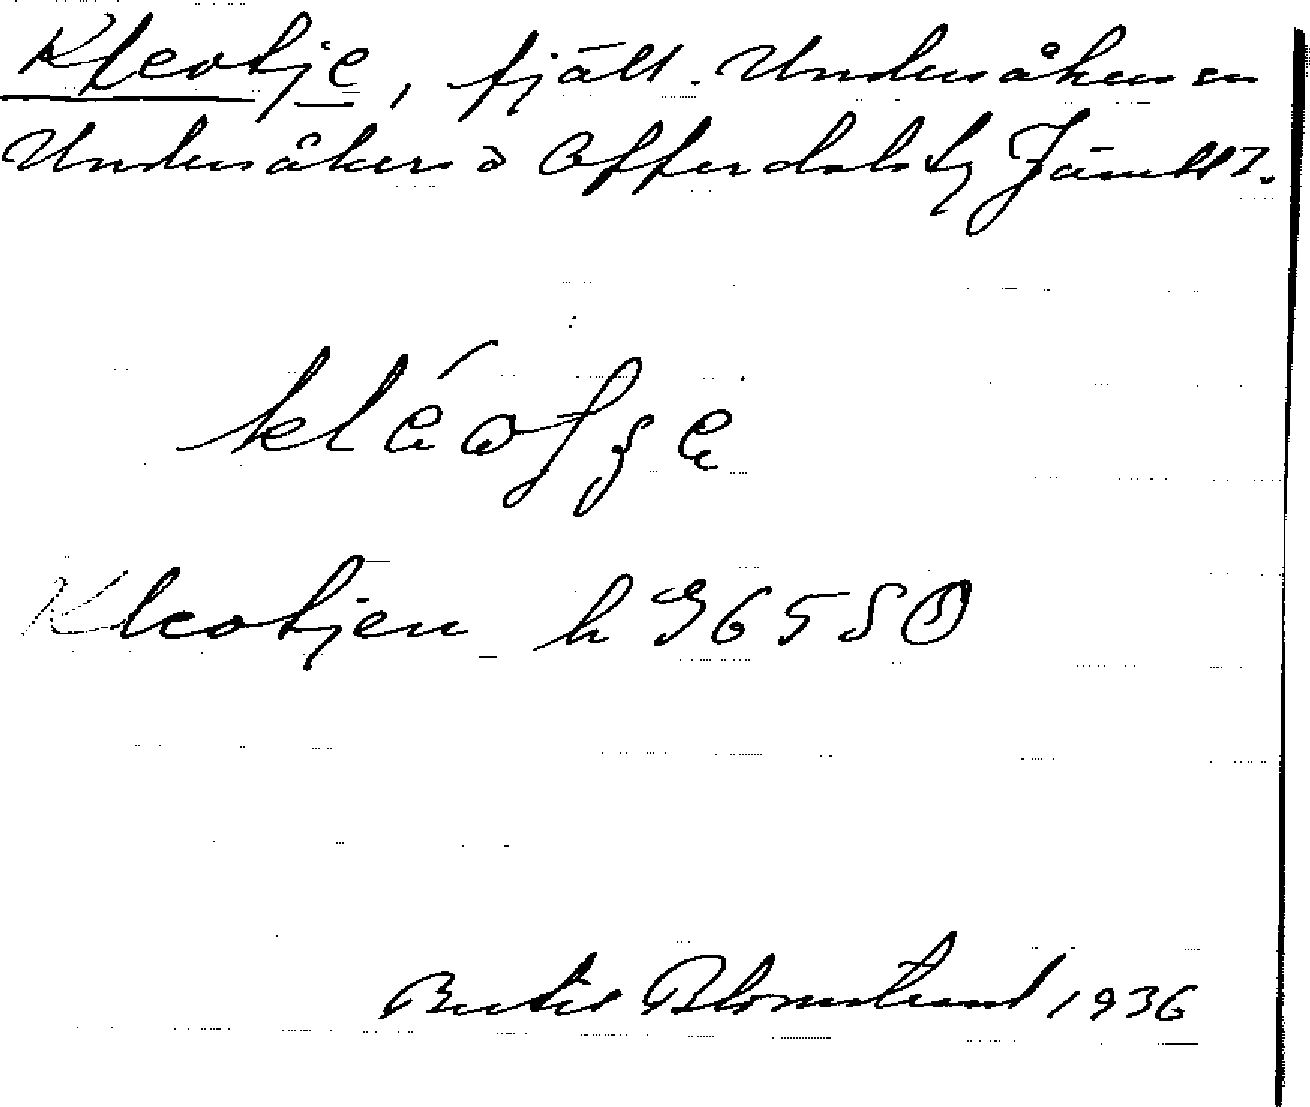 Kleotje, fjäll. Undersåkers sn
Undersåkers o Offerdals tg Jämtl.
kléotje
Kleotjen h 36550
Bertil Blomstrand 1936